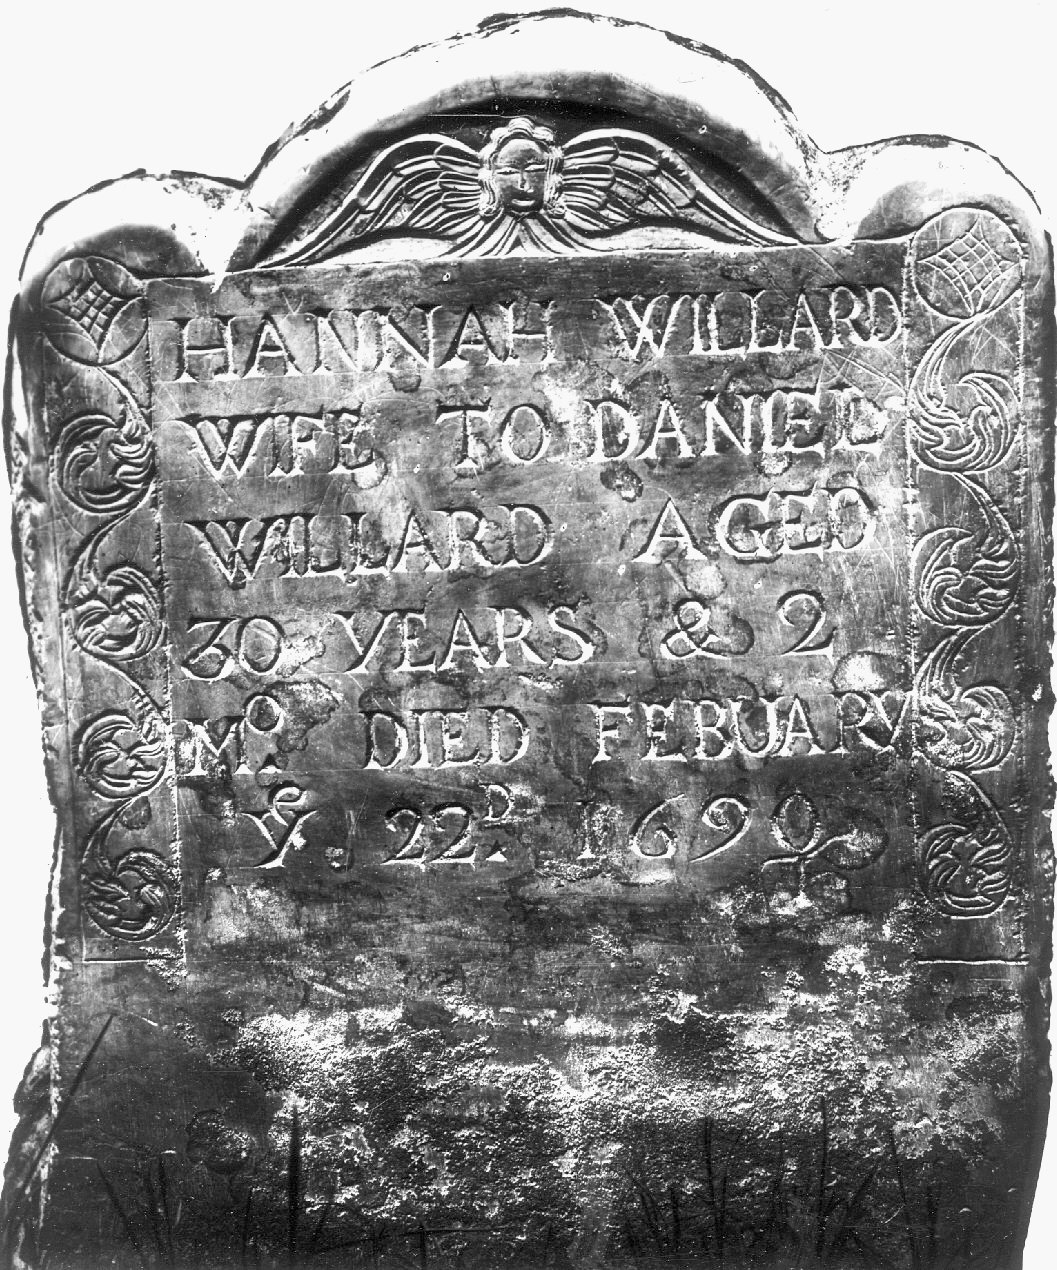 HANNAH WILLARD
WIFE TO DANIEL
WILLARD AGED
30 YEARS & 2
Mº. DIED FEBUARY
Yᵉ 22ᴰ. 1690/1